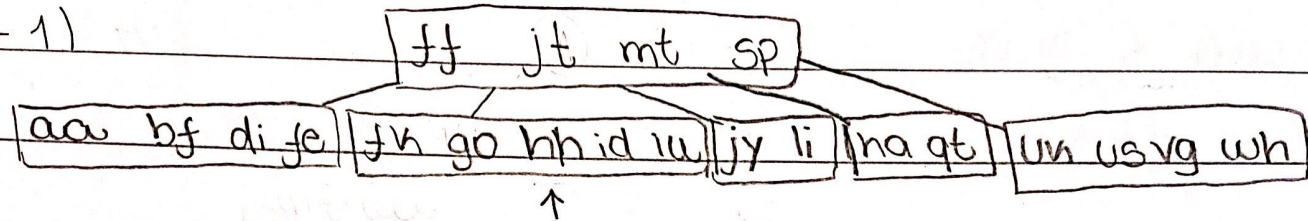 - 1)
ff jt mt sp
aa bf di fe fk go hh id iu jy li na qt un us vg wh
↑